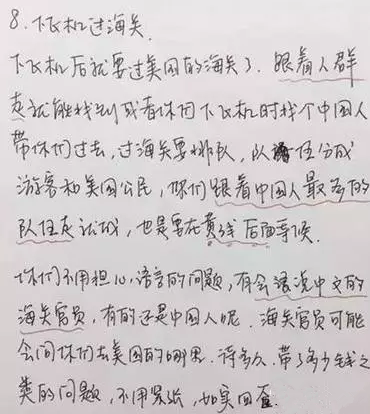 8.下飞机过海关.
下飞机后就要过美国的海关了.跟着人群
走就能找到或者你们下飞机时找个中国人
带你们过去,过海关要排队,队伍分成
游客和美国公民,你们跟着中国人最多的
队伍走就成,也是要在黄线后面等候.
你们不用担心语言的问题,有会讲说中文的
海关官员,有的还是中国人呢.海关官员可能
会问你们去美国的哪里.待多久.带了多少钱之
类的问题,不用紧张,如实回答.